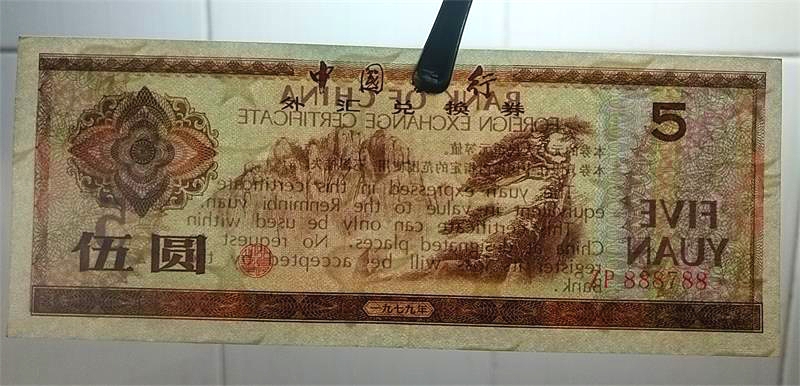 中国 行
BANK OF CHINA
外汇兑换券
FOREIGN EXCHANGE CERTIFICATE
5
The yuan expressed in this certificate
equivalent in value to the Renminbi Yuan.
This certificate can only be used within
China at designated places. No request
register its loss will be accepted by t
Bank.
FIVE
YUAN
伍圆
ZP 888788
一九七九年